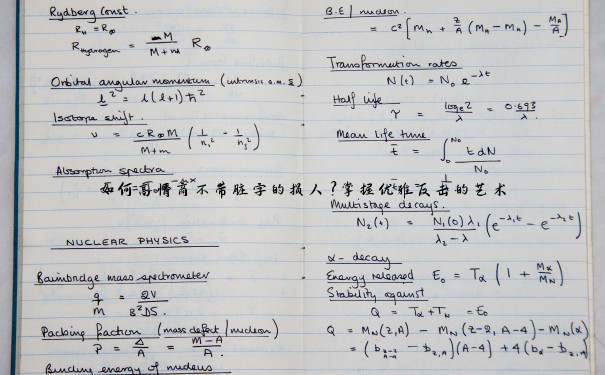 Rydberg Const.
R_H = R_∞
R_Hydrogen = M/(M+m) R_∞
Orbital angular momentum (intrinsic a.m. s)
l² = l(l+1)ħ²
Isotope shift.
ν = cR_∞M/(M+m) (1/n₁² - 1/n₂²)
Absorption spectra
如何高情商不带脏字的损人?掌握优雅反击的艺术
NUCLEAR PHYSICS
Bainbridge mass spectrometer
q/m = 2V/(B²DS).
Packing fraction (mass defect/nucleon)
P = Δ/A = (M-A)/A.
Binding energy of nucleus
B.E / nucleon.
= c² [M_n + Z/A (M_H - M_n) - M_A/A]
Transformation rates
N(t) = N₀ e^(-λt)
Half life
τ = log_e 2/λ = 0.693/λ.
Mean life time
t̄ = ∫₀^N₀ t dN/N₀
Multistage decays.
N₂(t) = N₁(0)λ₁/(λ₂-λ) (e^(-λ₁t) - e^(-λ₂t))
α-decay
Energy released E₀ = T_α (1 + M_α/M_N)
Stability against
Q = T_α + T_N = E₀
Q = M_N(Z,A) - M_N(Z-2, A-4) - M_N(α)